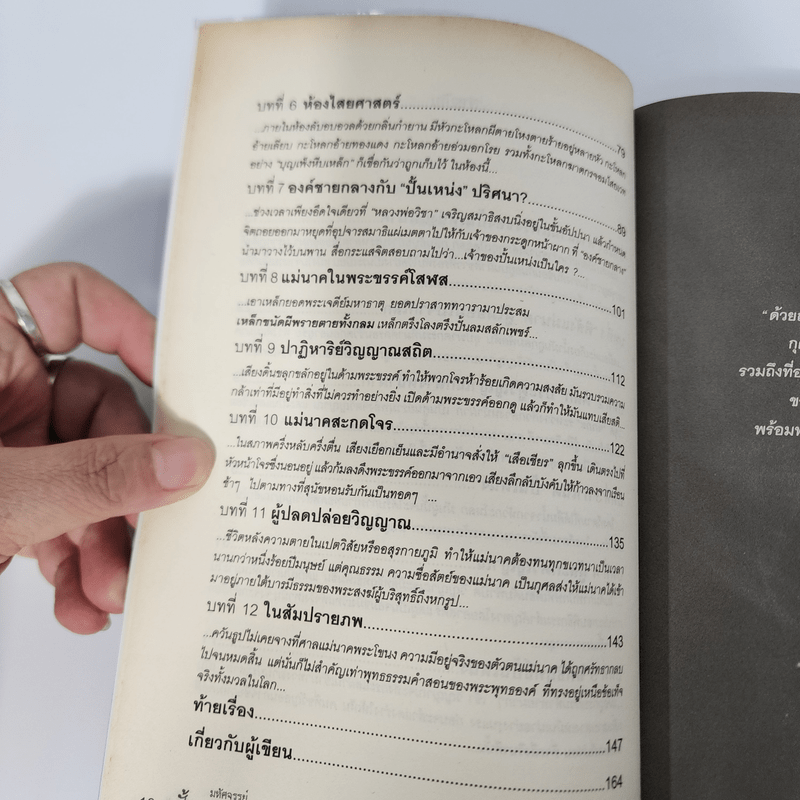 บทที่ 6 ห้องไสยศาสตร์............79
...ภายในห้องลับอบอวลด้วยกลิ่นกำยาน มีหัวกะโหลกผีตายโหงตายร้ายอยู่หลายหัว กะโหลก
อ้ายเตียบ กะโหลกอ้ายทองแดง กะโหลกอ้ายอ่วมอกโรย รวมทั้งกะโหลกฆาตกรจอมโหด
อย่าง "บุญเพ็งหีบเหล็ก" ก็เชื่อกันว่าถูกเก็บไว้ ในห้องนี้...
บทที่ 7 องค์ชายกลางกับ "ปั้นเหน่ง" ปริศนา?............89
...ช่วงเวลาเพียงอึดใจเดียวที่ "หลวงพ่อวิชา" เจริญสมาธิสงบนิ่งอยู่ในขั้นอัปปนา แล้วกำหนด
จิตถอยออกมาหยุดที่อุปจารสมาธิแผ่เมตตาไปให้กับเจ้าของกระดูกหน้าผาก ที่ "องค์ชายกลาง"
นำมาวางไว้บนพาน สื่อกระแสจิตสอบถามไปว่า...เจ้าของปั้นเหน่งเป็นใคร ?...
บทที่ 8 แม่นาคในพระขรรค์โสฬส............101
...เอาเหล็กยอดพระเจดีย์มหาธาตุ ยอดปราสาททวารามาประสม
เหล็กขนัดผีพรายตายทั้งกลม เหล็กตรึงโลงตรึงปั้นลมสลักเพชร์...
บทที่ 9 ปาฏิหาริย์วิญญาณสถิต............112
...เสียงดิ้นขลุกขลักอยู่ในด้ามพระขรรค์ ทำให้พวกโจรห้าร้อยเกิดความสงสัย มันรวบรวมความ
กล้าเท่าที่มีอยู่ทำสิ่งที่ไม่ควรทำอย่างยิ่ง เปิดด้ามพระขรรค์ออกดู แล้วก็ทำให้มันแทบเสียสติ...
บทที่ 10 แม่นาคสะกดโจร............122
...ในสภาพครึ่งหลับครึ่งตื่น เสียงเยือกเย็นและมีอำนาจสั่งให้ "เสือเขียร" ลุกขึ้น เดินตรงไปที่
หัวหน้าโจรซึ่งนอนอยู่ แล้วก้มลงดึงพระขรรค์ออกมาจากเอว เสียงลึกลับบังคับให้ก้าวลงจากเรือน
ช้าๆ ไปตามทางที่สุนัขหอนรับกันเป็นทอดๆ ...
บทที่ 11 ผู้ปลดปล่อยวิญญาณ............135
...ชีวิตหลังความตายในเปตวิสัยหรืออสุรกายภูมิ ทำให้แม่นาคต้องทนทุกขเวทนาเป็นเวลา
นานกว่าหนึ่งร้อยปีมนุษย์ แต่คุณธรรม ความซื่อสัตย์ของแม่นาค เป็นกุศลส่งให้แม่นาคได้เข้า
มาอยู่ภายใต้บารมีธรรมของพระสงฆ์ผู้บริสุทธิ์ถึงหกรูป...
บทที่ 12 ในสัมปรายภพ............143
...ควันธูปไม่เคยจางที่ศาลแม่นาคพระโขนง ความมีอยู่จริงของตัวตนแม่นาค ได้ถูกศรัทธากลบ
ไปจนหมดสิ้น แต่นั่นก็ไม่สำคัญเท่าพุทธธรรมคำสอนของพระพุทธองค์ ที่ทรงอยู่เหนือข้อเท็จ
จริงทั้งมวลในโลก...
ท้ายเรื่อง............147
เกี่ยวกับผู้เขียน............164
มหัศจรรย์
"ด้วย
รวมถึงที่
พร้อม